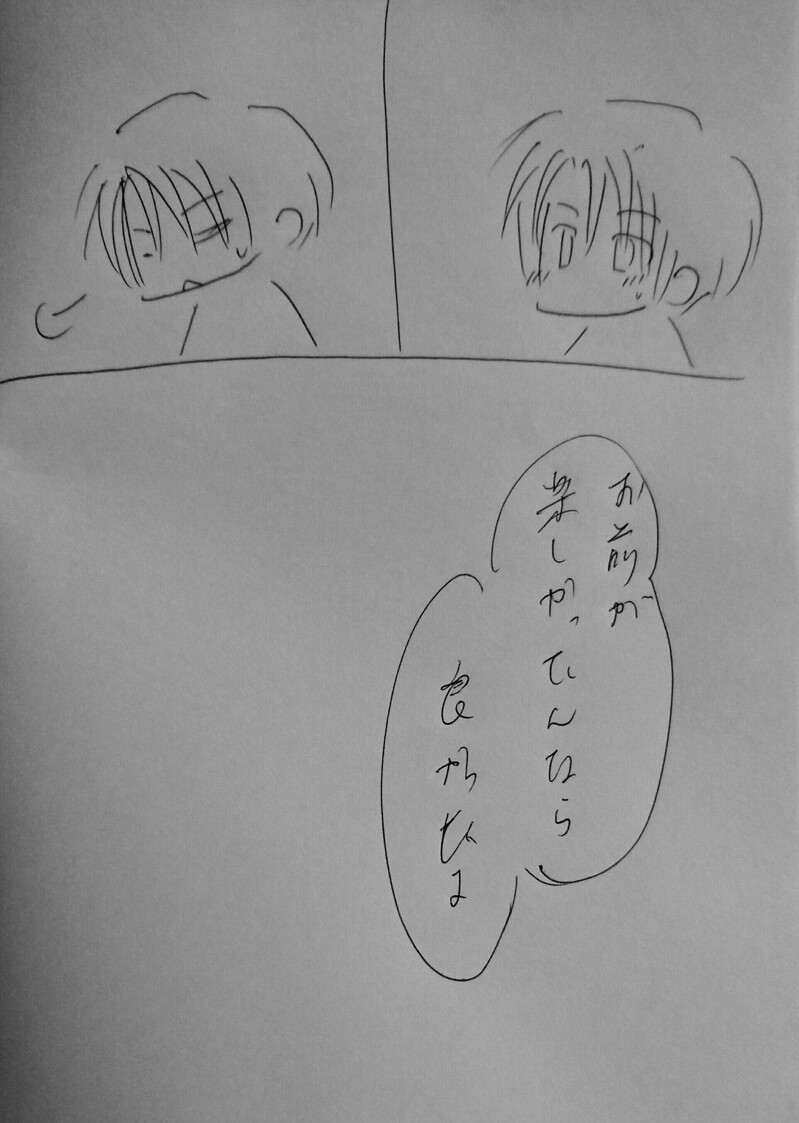 お前が
楽しかったんなら
良かったよ